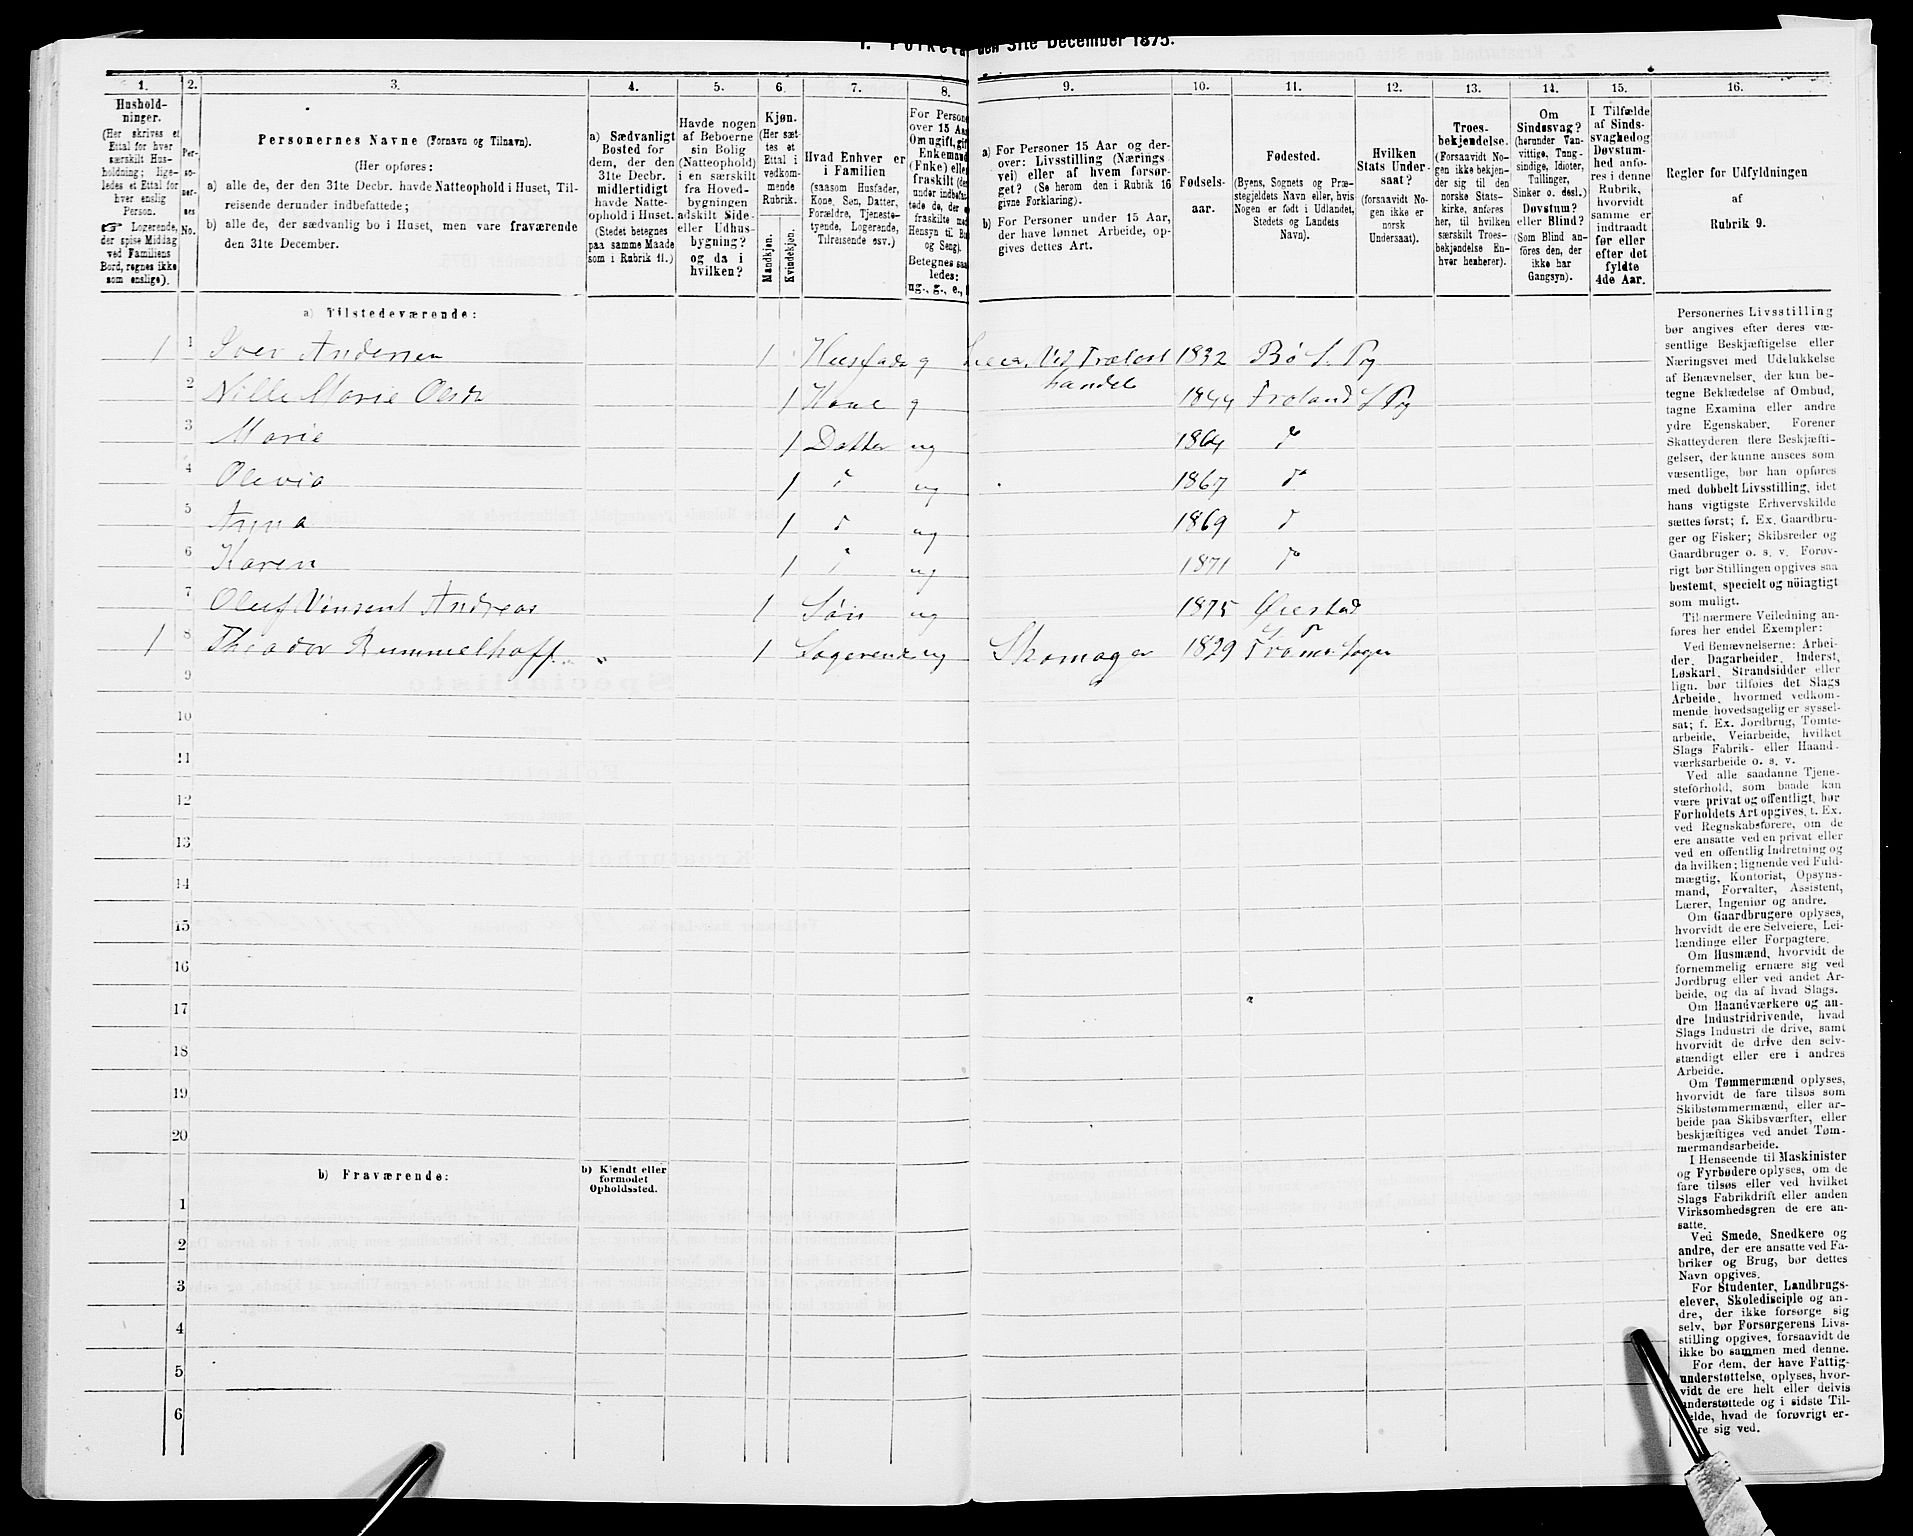 1. Folketæ den 31te December 1875.
1. 2. 3. 4. 5. 6. 7. 8. 9. 10. 11. 12. 13. 14. 15. 16.
Hushold-
ninger.
(Her skrives et
Ettal for hver
særskilt Hus-
holdning; lige-
ledes et Ettal for
hver enslig
Person.
☞ Logerende,
der spise Middag
ved Familiens
Bord, regnes ikke
som enslige).
Per-
so-
ner-
nes
No.
Personernes Navne (Fornavn og Tilnavn).
(Her opføres:
a) alle de, der den 31te Decbr. havde Natteophold i Huset, Til-
reisende derunder indbefattede;
b) alle de, der sædvanlig bo i Huset, men vare fraværende
den 31te December.
a) Sædvanligt
Bosted for
dem, der den
31te Decbr.
midlertidigt
havde Natte-
ophold i Huset.
(Stedet betegnes
paa samme Maade
som i Rubrik 11.)
Havde nogen
af Beboerne
sin Bolig
(Natteophold)
i en særskilt
fra Hoved-
bygningen
adskilt Side-
eller Udhus-
bygning?
og da i
hvilken?
Kjøn.
(Her sæt-
tes et
Ettal i
vedkom-
mende
Rubrik.
Mandkjøn.
Kvindekjøn.
Hvad Enhver er
i Familien
(saasom Husfader,
Kone, Søn, Datter,
Forældre, Tjeneste-
tyende, Logerende,
Tilreisende osv.).
For Persone
over 15 Aa
Om ugift, gif
Enkemand
(Enke) elle
fraskilt (de
under indbefat-
tede de, der e
fraskilte med
Hensyn til Bo
og Seng).
Betegnes saa
ledes:
ug., g., e.,
a) For Personer 15 Aar og der-
over: Livsstilling (Nærings-
vei) eller af hvem forsør-
get? (Se herom den i Rubrik 16
givne Forklaring).
b) For Personer under 15 Aar,
der have lønnet Arbeide, op-
gives dettes Art.
Fødsels-
aar.
Fødested.
(Byens, Sognets og Præ-
stegjeldets Navn eller, hvis
Nogen er født i Udlandet,
Stedets og Landets
Navn).
Hvilken
Stats Under-
saat?
(forsaavidt No-
gen ikke er
norsk
Undersaat).
Troes-
bekjendelse.
(Forsaavidt No-
gen ikke bekjen-
der sig til den
norske Stats-
kirke, anføres
her, til hvilken
særskilt Troes-
bekjendelse En-
hver henhører).
Om
Sindssvag?
(herunder Van-
vittige, Tung-
sindige, Idioter,
Tullinger,
Sinker o. desl.)
Døvstum?
eller Blind?
(Som Blind an-
føres den, der
ikke har
Gangsyn).
I Tilfælde
af Sinds-
svaghed og
Døvstum-
hed anfø-
res i denne
Rubrik,
hvorvidt
samme er
indtraadt
før eller
efter det
fyldte
4de Aar.
Regler for Udfyldningen
af
Rubrik 9.
a) Tilstedeværende:
1 1 Iver Andersen 1 Husfader g Træl handel 1832 Bø
2 Nille Marie Olsdr 1 Kone g 1844 Froland
3 Marie 1 Datter ug 1864 do
4 Olevia 1 do ug 1867 do
5 Anna 1 do ug 1869 do
6 Karen 1 do ug 1871 do
7 Oluf Vinsent Andreas 1 Søn ug 1875 Øiestad
1 8 Theodor Rummelhoff 1 Logerende ug Skomager 1829
9
10
11
12
13
14
15
16
17
18
19
20
b) Fraværende:
b) Kjendt eller
formodet
Opholdssted.
1
2
3
4
5
6
Personernes Livsstilling
bør angives efter deres væ-
sentlige Beskjæftigelse eller
Næringsvei med Udelukkelse
af Benævnelser, der kun be-
tegne Beklædelse af Ombud,
tagne Examina eller andre
ydre Egenskaber. Forener
Skatteyderen flere Beskjæfti-
gelser, der kunne ansees som
væsentlige, bør han opføres
med dobbelt Livsstilling, idet
hans vigtigste Erhvervskilde
sættes først; f. Ex. Gaardbru-
ger og Fisker; Skibsreder og
Gaardbruger o. s. v. Forøv-
rigt bør Stillingen opgives saa
bestemt, specielt og nøiagtigt
som muligt.
Til nærmere Veiledning an-
føres her endel Exempler:
Ved Benævnelserne: Arbei-
der, Dagarbeider, Inderst,
Løskarl, Strandsidder eller
lign. bør tilføies det Slags
Arbeide, hvormed vedkom-
mende hovedsagelig er syssel-
sat; f. Ex. Jordbrug, Tomte-
arbeide, Veiarbeide, hvilket
Slags Fabrik- eller Haand-
værksarbeide o. s. v.
Ved alle saadanne Tjene-
steforhold, som baade kan
være privat og offentligt, bør
Forholdets Art opgives, t. Ex.
ved Regnskabsførere, om de
ere ansatte ved en privat eller
ved en offentlig Indretning og
da hvilken; lignende ved Fuld-
mægtig, Kontorist, Opsyns-
mand, Forvalter, Assistent,
Lærer, Ingeniør og andre.
Om Gaardbrugere oplyses,
hvorvidt de ere Selveiere, Lei-
lændinge eller Forpagtere.
Om Husmænd, hvorvidt de
fornemmelig ernære sig ved
Jordbrug eller ved andet Ar-
beide, og da af hvad Slags.
Om Haandværkere og an-
dre Industridrivende, hvad
Slags Industri de drive, samt
hvorvidt de drive den selv-
stændigt eller ere i andres
Arbeide.
Om Tømmermænd oplyses,
hvorvidt de fare tilsøs som
Skibstømmermænd, eller ar-
beide paa Skibsværfter, eller
beskjæftiges ved andet Tøm-
mermandsarbeide.
I Henseende til Maskinister
og Fyrbødere oplyses, om de
fare tilsøs eller ved hvilket
Slags Fabrikdrift eller anden
Virksomhedsgren de ere an-
satte.
Ved Smede, Snedkere og
andre, der ere ansatte ved Fa-
briker og Brug, bør dettes
Navn opgives.
For Studenter, Landbrugs-
elever, Skoledisciple og an-
dre, der ikke forsørge sig
selv, bør Forsørgerens Livs-
stilling opgives, forsaavidt de
ikke bo sammen med denne.
For dem, der have Fattig-
understøttelse, oplyses, hvor-
vidt de ere helt eller delvis
understøttede og i sidste Til-
ælde, hvad de forøvrigt er-
re sig ved.